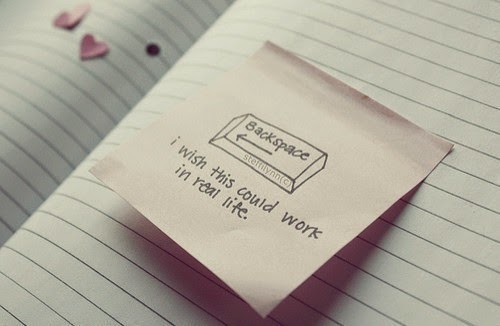 Backspace
steffilynn(c)
i wish this could work
in real life.